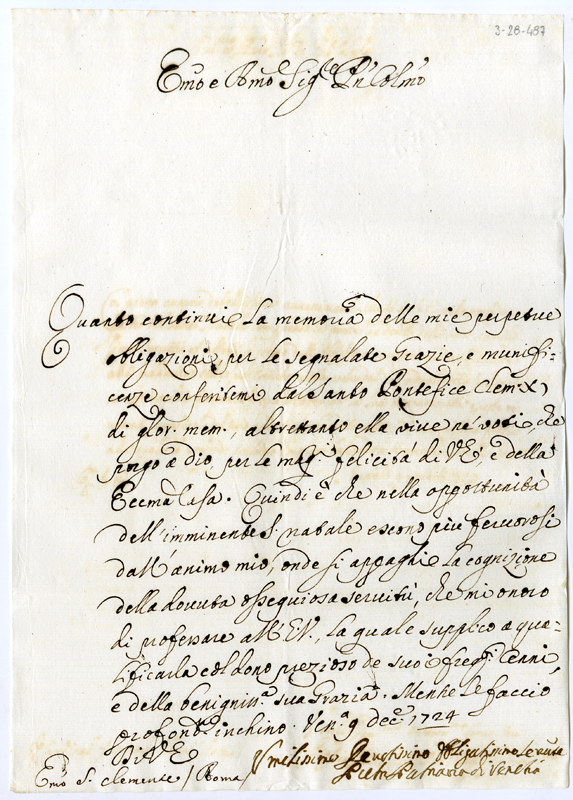 3-28-487
Emo e Rmo Sigre Pn Colmo
Quanto continui la memoria delle mie perpetue
obligazioni per le segnalate Grazie, e munifi-
cenze conferitemi dal Santo Pontefice Clem: X
di glor. mem., altrettanto ella vive ne' voti, che
porgo a dio per le magi felicità di VE, e della
Eccma Casa. Quindi è che nella opportunità
dell'imminente S. natale escono più fervorosi
dall'animo mio, onde si appaghi la cognizione
della dovuta osseguiosa servitù, che mi onoro
di professare all'EV, la quale supplico a qua-
lificarla col dono prezioso de suoi freg. Cenni,
e della benigniss.a sua Grazia. Mentre le faccio
profondo inchino. Ven.a 9 decẽ 1724
Di VE
Umilissimo Devotissimo Obligatissimo Servitore
Pietro Patriarca di Venetia
Emo S. Clemente / Roma